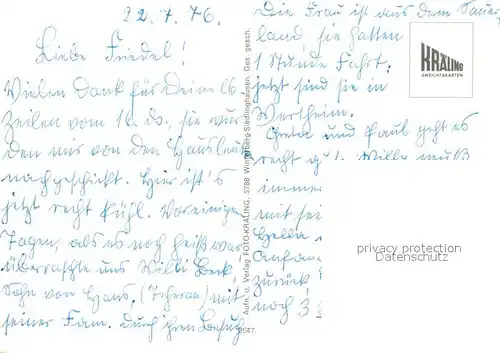 22.7.76.
Liebe Friedel!
Vielen Dank für Deine lb.
Zeilen vom 16. ds. sie wur
den uns von den Hausleuten
nachgeschickt. Hier ist's
jetzt recht kühl. Vor einigen
Tagen, als es noch heiß war,
überraschte uns Willi Beck,
Sohn von Hans, (Teheran) mit
seiner Fam. durch ihren Besuch
Die Frau ist aus dem Sauer
land, sie hatten
1 Stunde Fahrt,
jetzt sind sie in
Wertheim.
Greta und Paul geht es
recht gut. Willi muß
immer
mit sei
Hella
Anfan
zurück,
noch 3
Aufn. u. Verlag FOTO-KRÄLING, 5788 Winterberg-Siedlinghausen, Ges. gesch.
KRÄLING
ANSICHTSKARTEN
privacy protection
Datenschutz